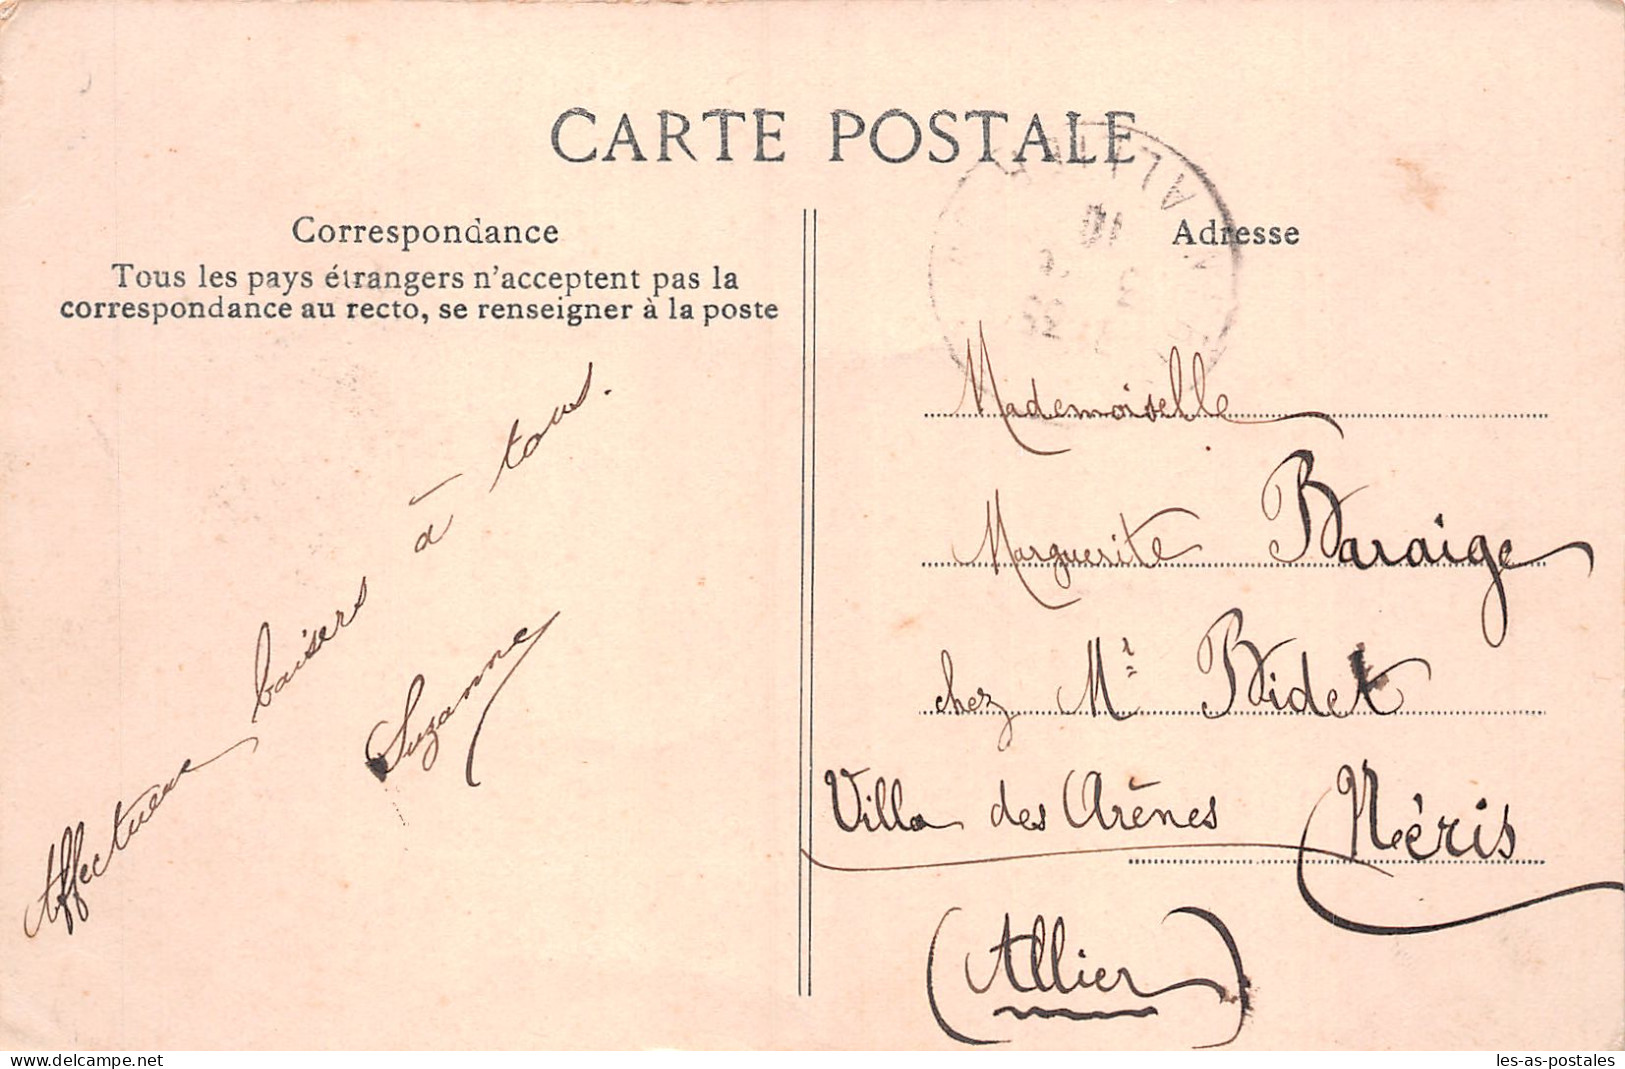 CARTE POSTALE
Correspondance
Tous les pays étrangers n'acceptent pas la
correspondance au recto, se renseigner à la poste
Affectueux baisers à tous.
Suzanne
Adresse
Mademoiselle
Marguerite Baraige
chez Mr Bidet
Villa des Arènes Néris
(Allier)
http://www.delcampe.net
les-as-postales